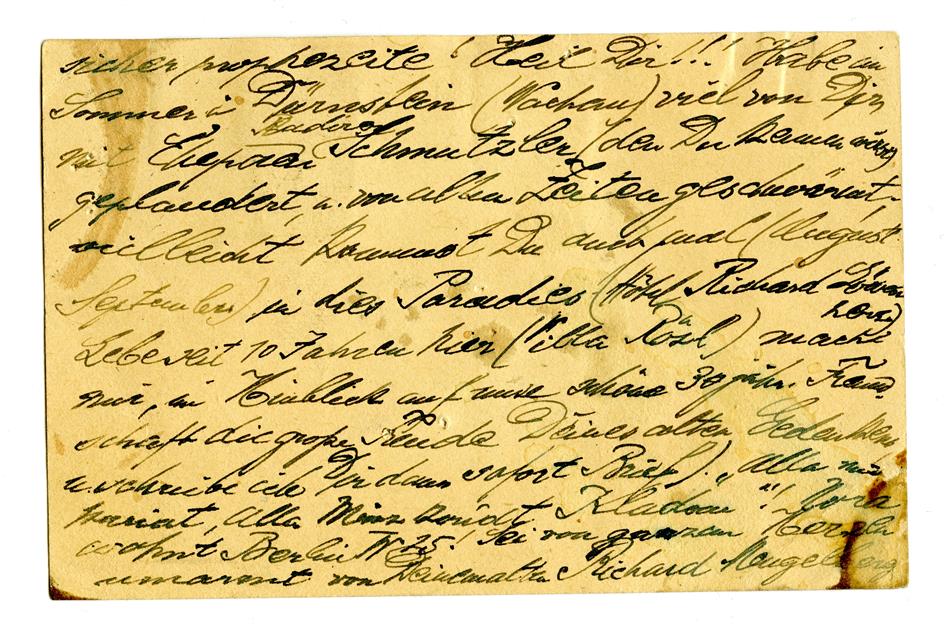 sicher prophezeite! Heil Dir!!! Habe im
Sommer in Dürnstein (Wachau) viel von Dir
mit Ehepaar Schmutzler (den Du kennen
geplaudert, u. von alten Zeiten geschwärmt,
vielleicht kommst Du auch mal (August
September) in dies Paradies (Hôtel Richard Löwen
herz)
Lebe seit 10 Jahren hier (Villa Rosl) mache
mir, in Hinblick auf unsre schöne 39 jähr. Freund
schaft die große Freude Deines alten Gedenkens
u. schreibe ich Dir dann sofort Brief). „Alla
wohnt Berlin W 25! Sei von ganzem Herzen
umarmt von Deinem alten Richard Mengelberg